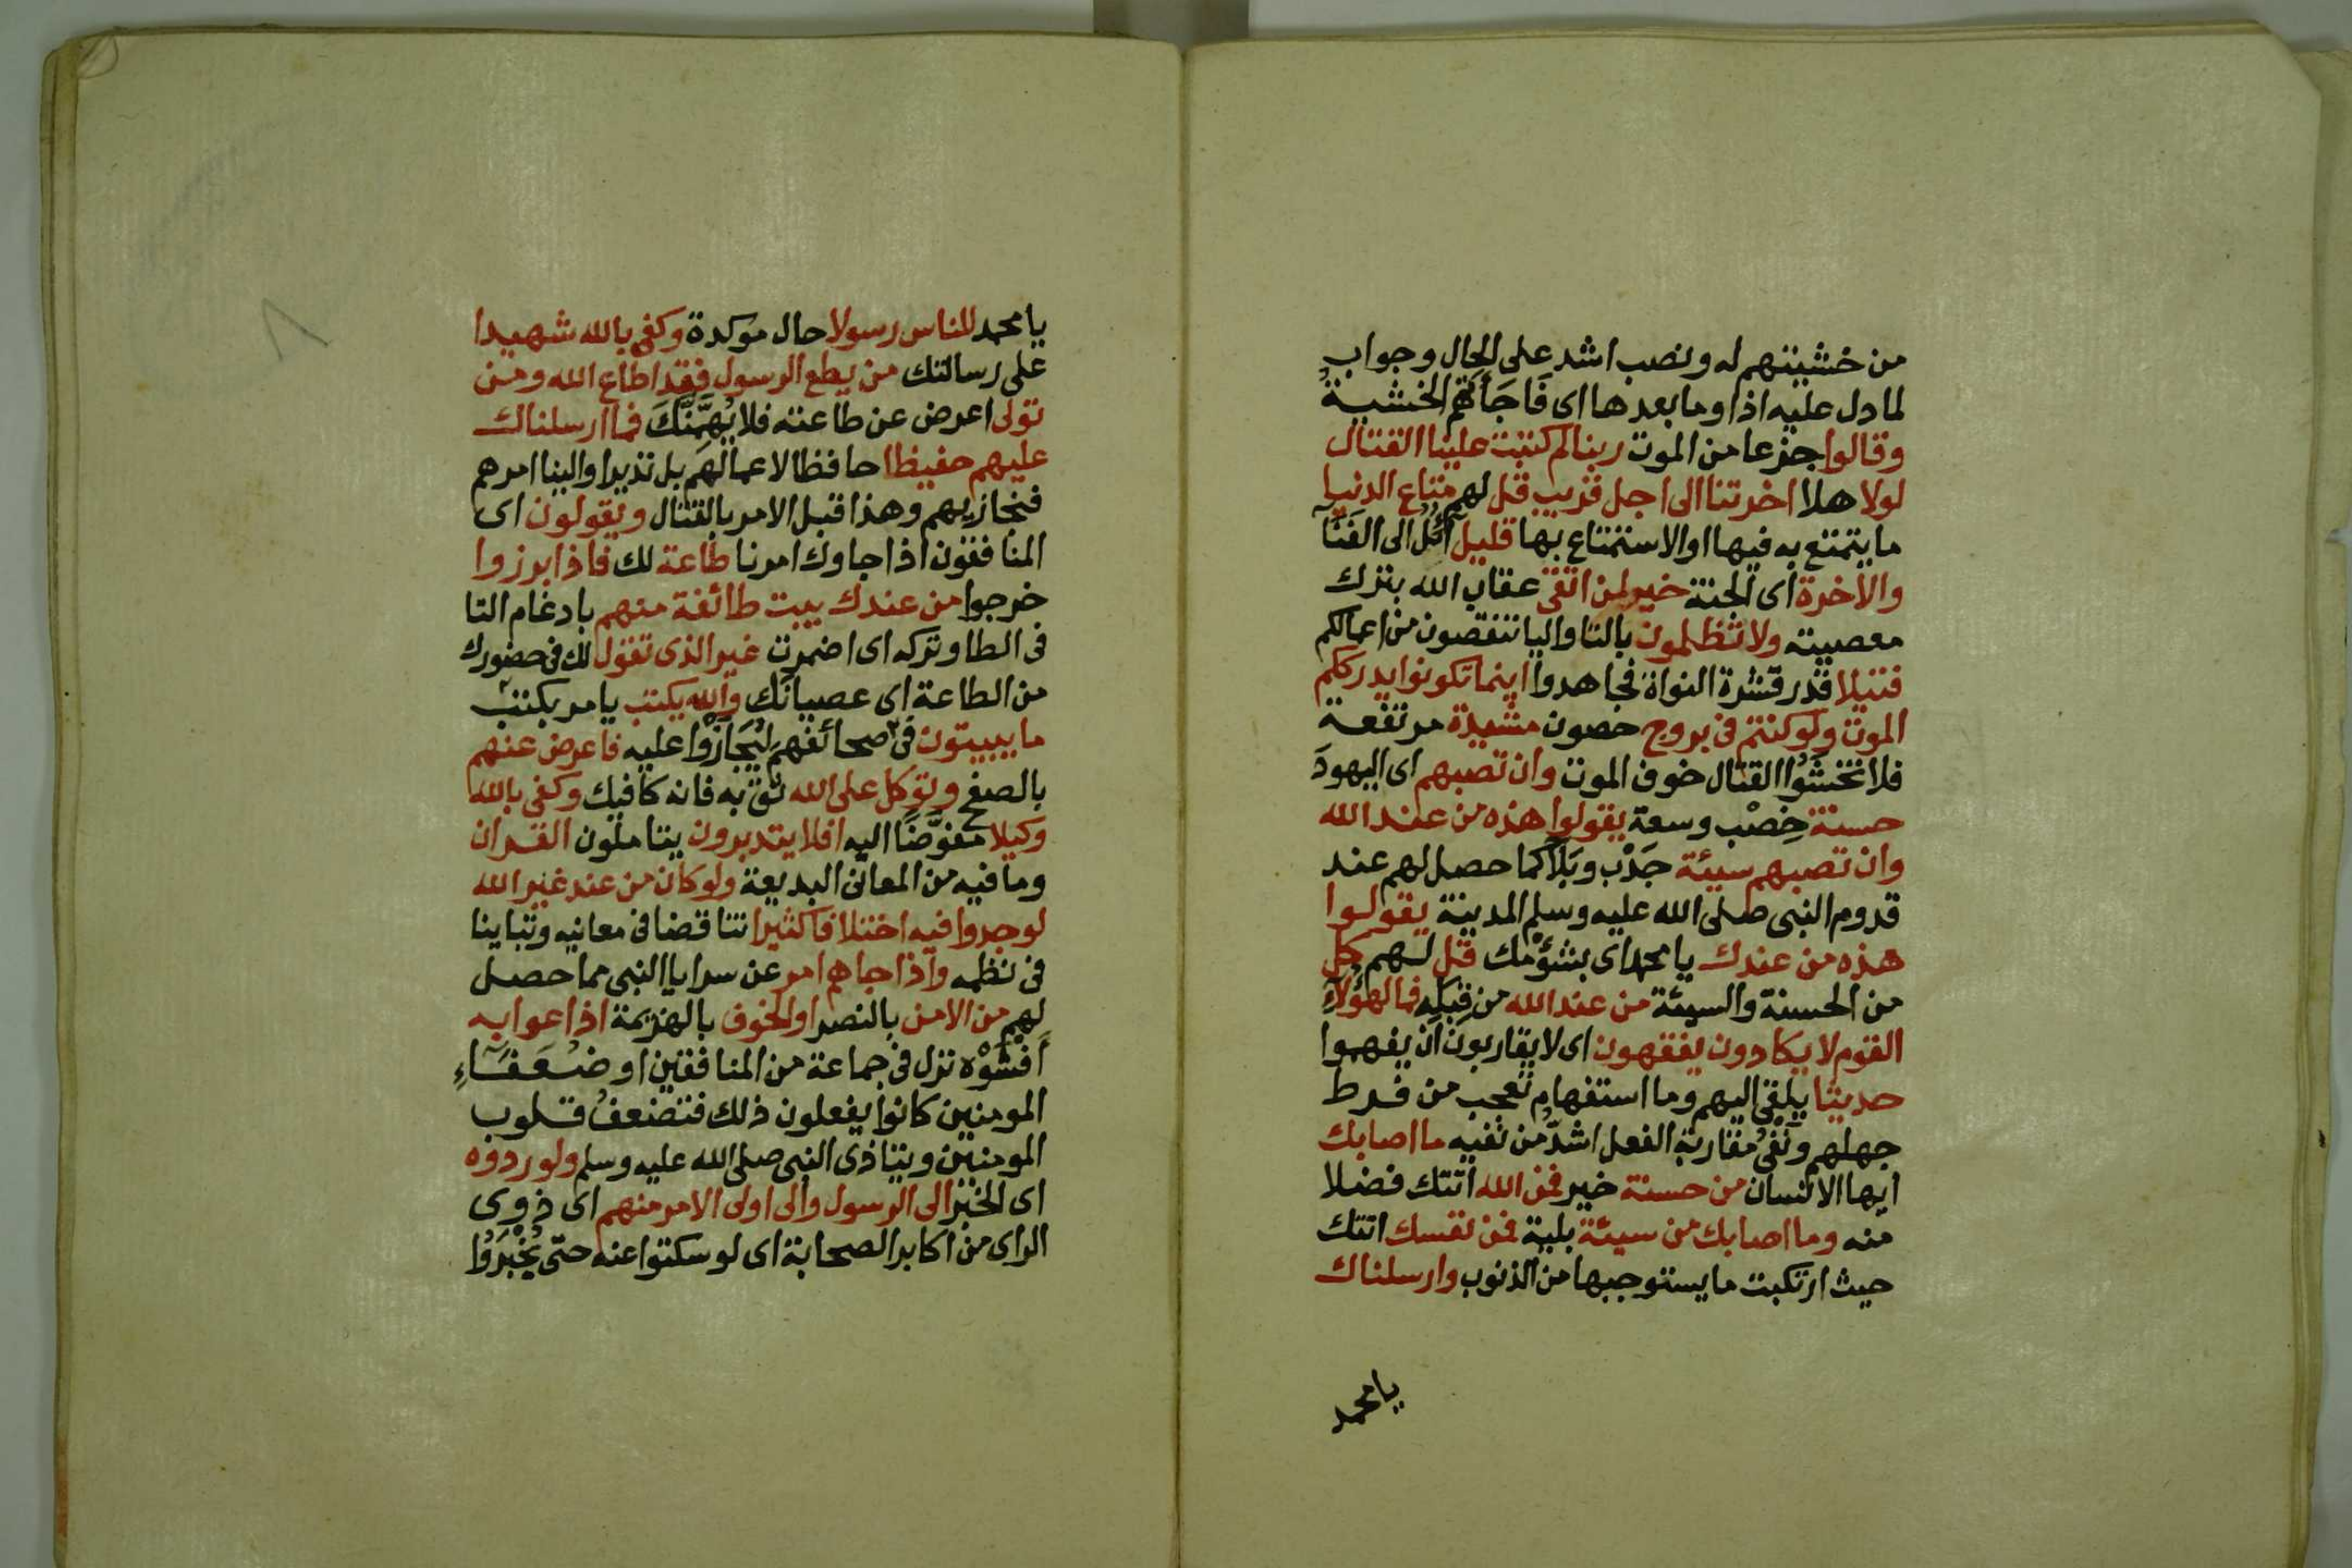 من خشيتهم له ونصب اشد على الحال وجواب
لما دل عليه اذا وما بعدها اى فَاجَأَتْهُم الخشيةُ
وقالوا جزعا من الموت ربنا لم كتبت علينا القتال
لولا هلا اخرتنا الى اجل قريب قل لهم متاع الدنيا
ما يتمتع به فيها او الاستمتاع بها قليل آئل الى الفَنَآ
والاخرة اى الجنة خير لمن اتقى عقاب الله بترك
معصيته ولا تظلمون بالتا واليا تنقصون من اعمالكم
فتيلا قدر قشرة النواة فجاهدوا اينما تكونوا يدرككم
الموت ولو كنتم فى بروج حصون مشيدة مرتفعة
فلا تخشَوُا القتال خوف الموت وان تصبهم اى اليهودَ
حسنة خِصْب وسعة يقولوا هذه من عند الله
وان تصبهم سيئة جَدْب وبَلَآ كما حصل لهم عند
قدوم النبى صلى الله عليه وسلم المدينة يقولوا
هذه من عندك يا محمد اى بشؤمك قل لهم كل
من الحسنة والسيئة من عند الله من قِبَلِه فما لهؤلآءِ
القوم لا يكادون يفقهون اى لا يقاربون ان يفهموا
حديثا يلقى اليهم وما استفهام تعجب من فرط
جهلهم ونَفْىُ مقاربة الفعل اشدُّ من نفيه ما اصابك
ايها الانسان من حسنة خير فمن الله اتتك فضلا
منه وما اصابك من سيئة بلية فمن نفسك اتتك
حيث ارتكبت ما يستوجبها من الذنوب وارسلناك
يا محمد
يا محمد للناس رسولا حال موكدة وكفى بالله شهيدا
على رسالتك من يطع الرسول فقد اطاع الله ومن
تولى اعرض عن طاعته فلا يُهِمَّنَّكَ فما ارسلناك
عليهم حفيظا حافظا لاعمالهم بل نذيرا والينا امرهم
فنجازيهم وهذا قبل الامر بالقتال ويقولون اى
المنافقون اذا جاوك امرنا طاعة لك فاذا برزوا
خرجوا من عندك بيت طائفة منهم بادغام التا
فى الطا وتركه اى اضمرت غير الذى تقول لك فى حضورك
من الطاعة اى عصيانَك والله يكتب يامر بكتب
ما يبيتون فى صحائفهم لِيُجَازَوْا عليه فاعرض عنهم
بالصفح وتوكل على الله ثق به فانه كافيك وكفى بالله
وكيلا مفوَّضًا اليه افلا يتدبرون يتاملون القران
وما فيه من المعانى البديعة ولو كان من عند غير الله
لوجدوا فيه اختلافا كثيرا تناقضا فى معانيه وتباينا
فى نظمه واذا جاهم امر عن سرايا النبى مما حصل
لهم من الامن بالنصر او الخوف بالهزيمة اذاعوا به
أَفْشَوْه نزل فى جماعة من المنافقين او ضعفآءِ
المومنين كانوا يفعلون ذلك فتضعفُ قلوب
المومنين ويتاذى النبى صلى الله عليه وسلم ولو ردوه
اى الخبر الى الرسول والى اولى الامر منهم اى ذوى
الراى من اكابر الصحابة اى لو سكتوا عنه حتى يُخْبَرُوا